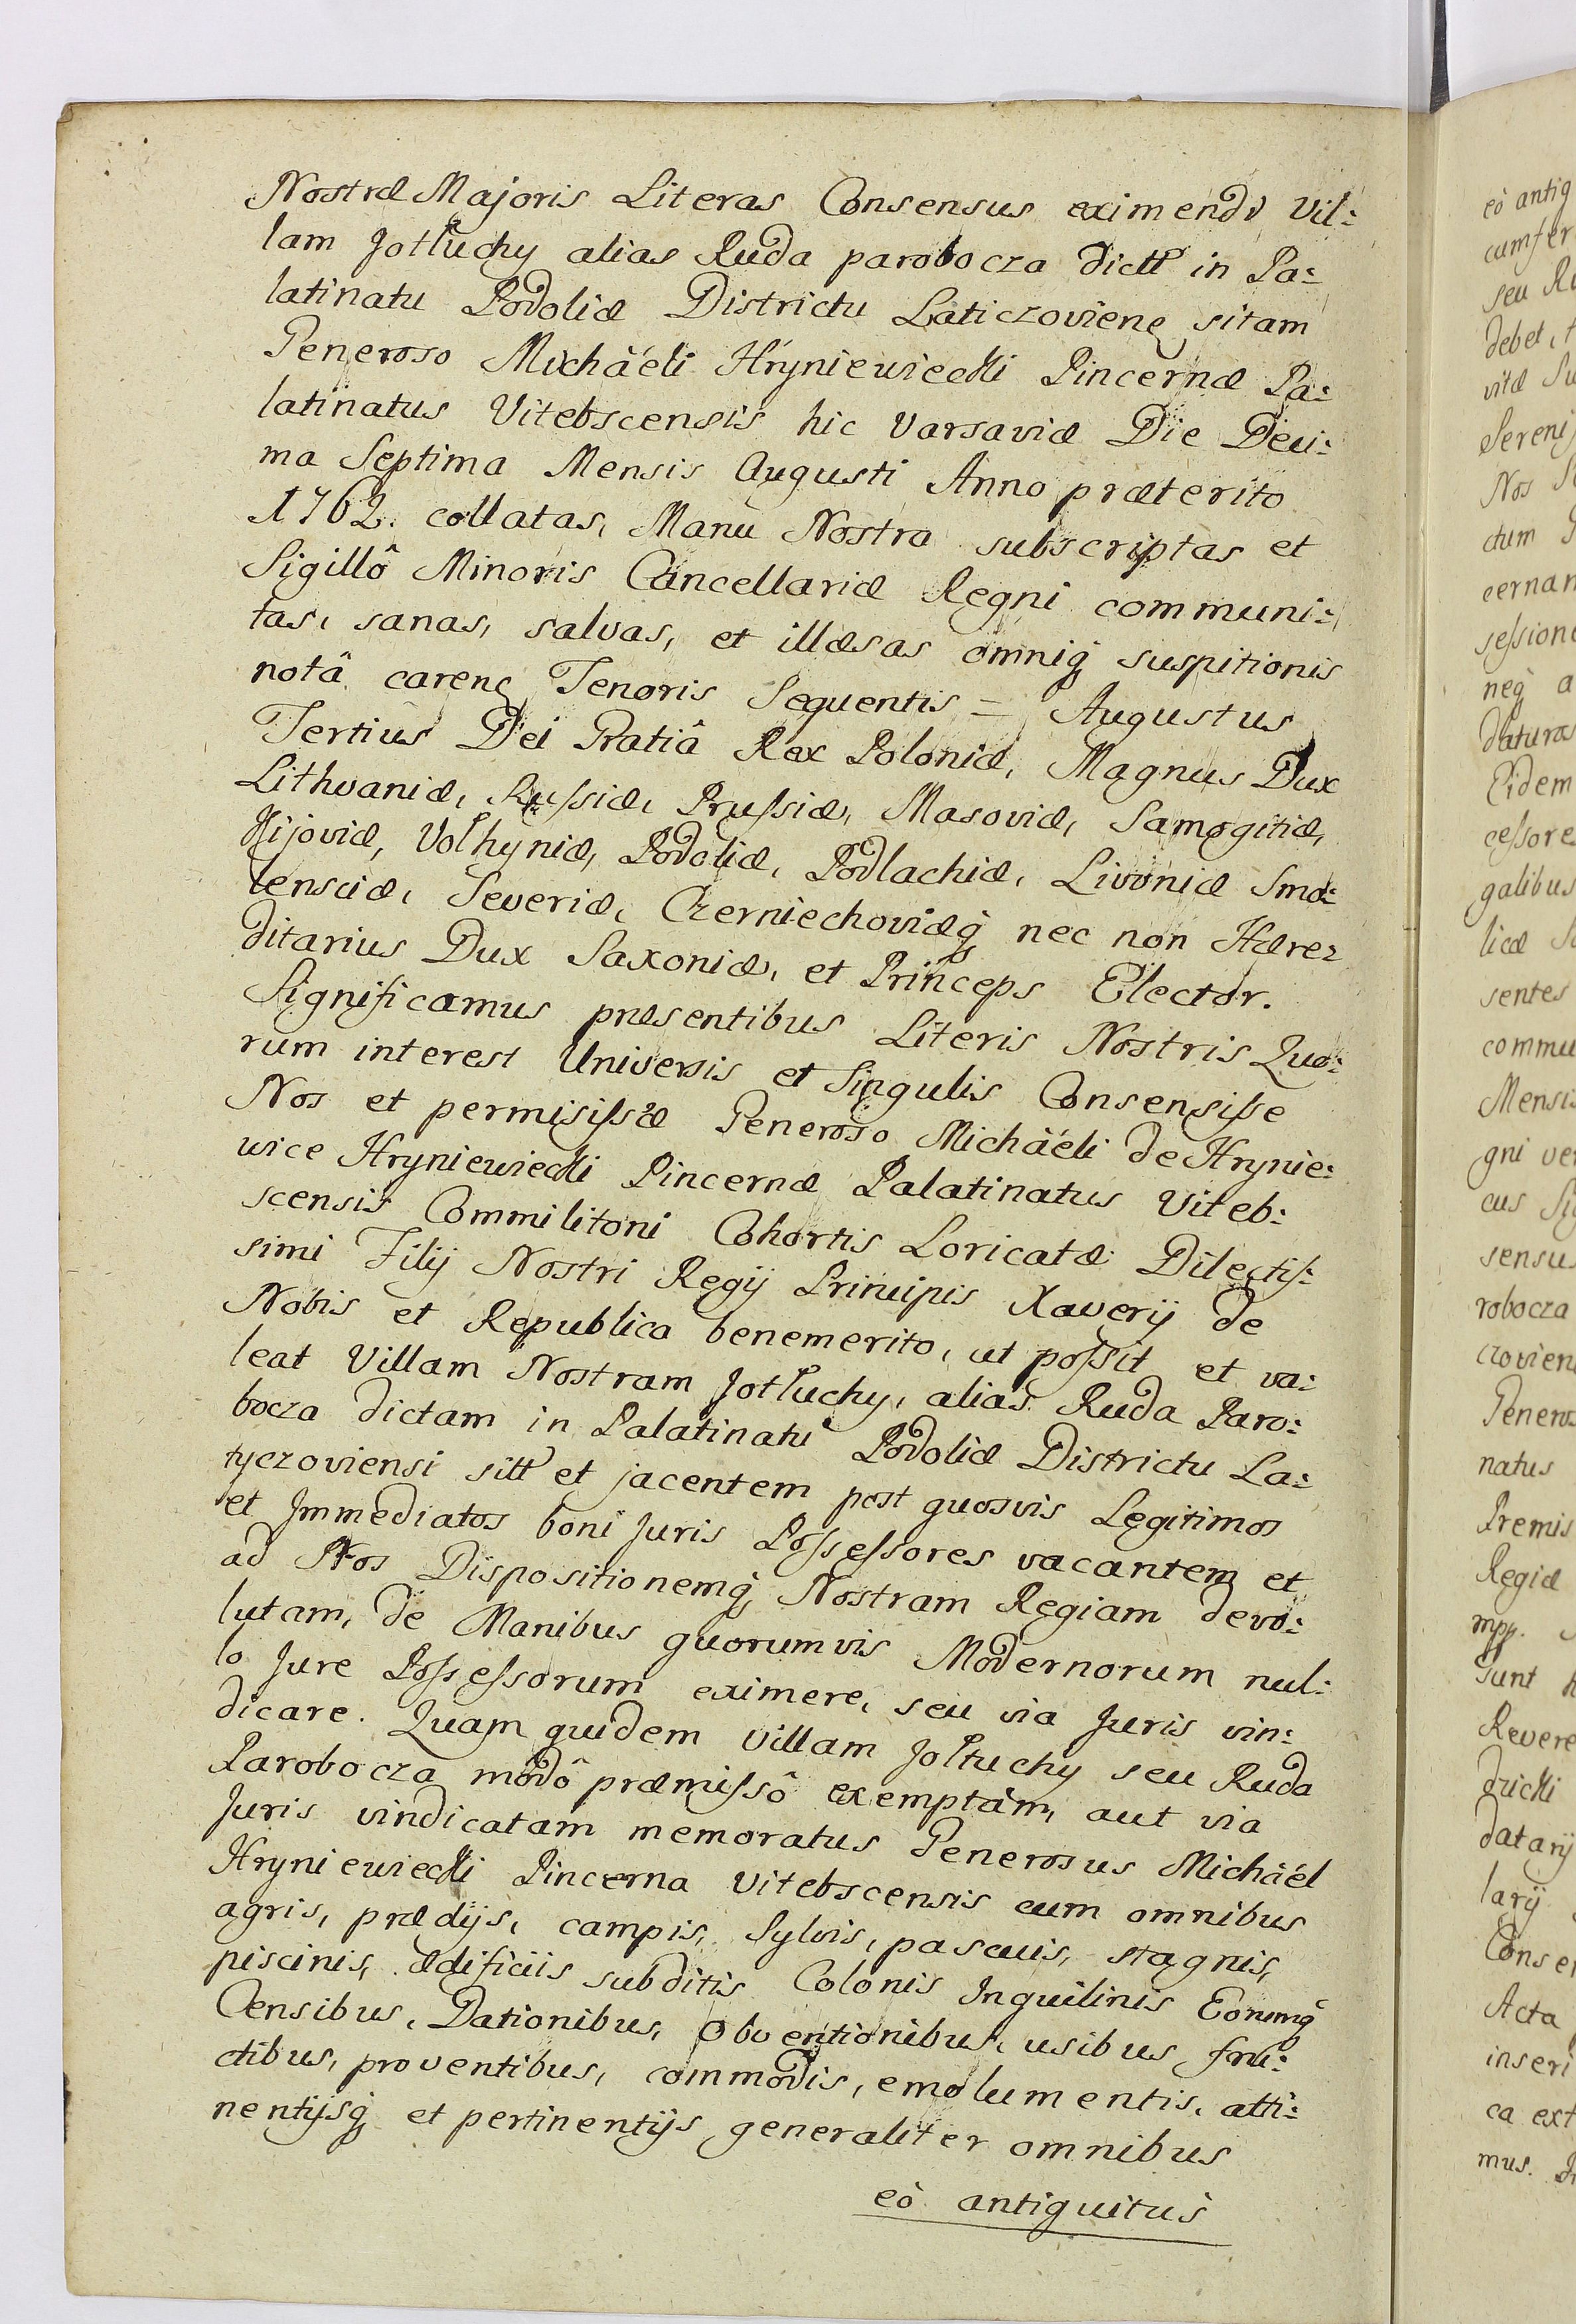 Nostræ Majoris Literas Consensus eximendi Vil:
lam Jołtuchy alias Ruda parobocza dictt in Pa:
latinatu Podoliæ Districtu Laticzoviene sitam
Generoso Michaëli Hryniewiecki Pincernæ Pa:
latinatus Vitebscensis hic Varsaviæ Die Deci:
ma Septima Mensis Augusti Anno præterito
1762. collatas, Manu Nostra subscriptas et
Sigillô Minoris Cancellariæ Regni communi:
tas, sanas, salvas, et illæsas omniq suspitionis
notâ carene Tenoris Sequentis = Augustus
Tertius Dei Gratiâ Rex Poloniæ, Magnus Dux
Lithvaniæ, Russiæ, Prussiæ, Masoviæ, Samogitiæ,
Kijoviæ, Volhyniæ, Podoliæ, Podlachiæ, Livoniæ Smo:
lensciæ, Severiæ, Czerniechoviæq nec non Hære:
ditarius Dux Saxoniæ, et Princeps Elector.
Significamus præsentibus Literis Nostris Quo:
rum interest Universis et Singulis Consensisse
Nos et permisissæ Generoso Michaëli de Hrynie:
wice Hryniewiecki Pincernæ Palatinatus Viteb:
scensis Commilitoni Cohortis Loricatæ Dilectis:
simi Filij Nostri Regij Principis Xaverij de
Nobis et Republica benemerito, ut possit et va:
leat Villam Nostram Jołtuchy, alias Ruda Paro:
bocza dictam in Palatinatu Podoliæ Districtu La:
tyczoviensi sitt et jacentem post quosvis Legitimos
et Immediatos boni Juris Possessores vacantem et
ad Nos Dispositionemq Nostram Regiam devo:
lutam, de Manibus quorumvis Modernorum nul:
lo Jure Possessorum eximere, seu via Juris vin:
dicare. Quam quidem Villam Jołtuchy seu Ruda
Parobocza modô præmissô exemptam, aut via
Juris vindicatam memoratus Generosus Michaël
Hryniewiecki Pincerna Vitebscensis cum omnibus
agris, prædijs, campis, Sylvis, pascuis, stagnis,
piscinis, ædificiis subditis Colonis Inquilinis Eorumq
Censibus, Dationibus, Obventionibus, usibus fru:
ctibus, proventibus, commodis, emolumentis, atti:
nentijsq et pertinentijs generaliter omnibus
eò antiquitus
eò antiq
cumfer
seu Ru
debet, t
vitæ Su
Sereni
Nos
ctum
cernan
sessione
neq a
daturos
Eidem
cessore
galibus
licæ
sentes
commu
Mensis
gni ve
cus Sig
sensus
robocza
czovien
Generos
natus
Premis
Regiæ
mpp.
Sunt
Revere
dzicki
datarij
larij
Conse
Acta
inseri
ca ext
mus.